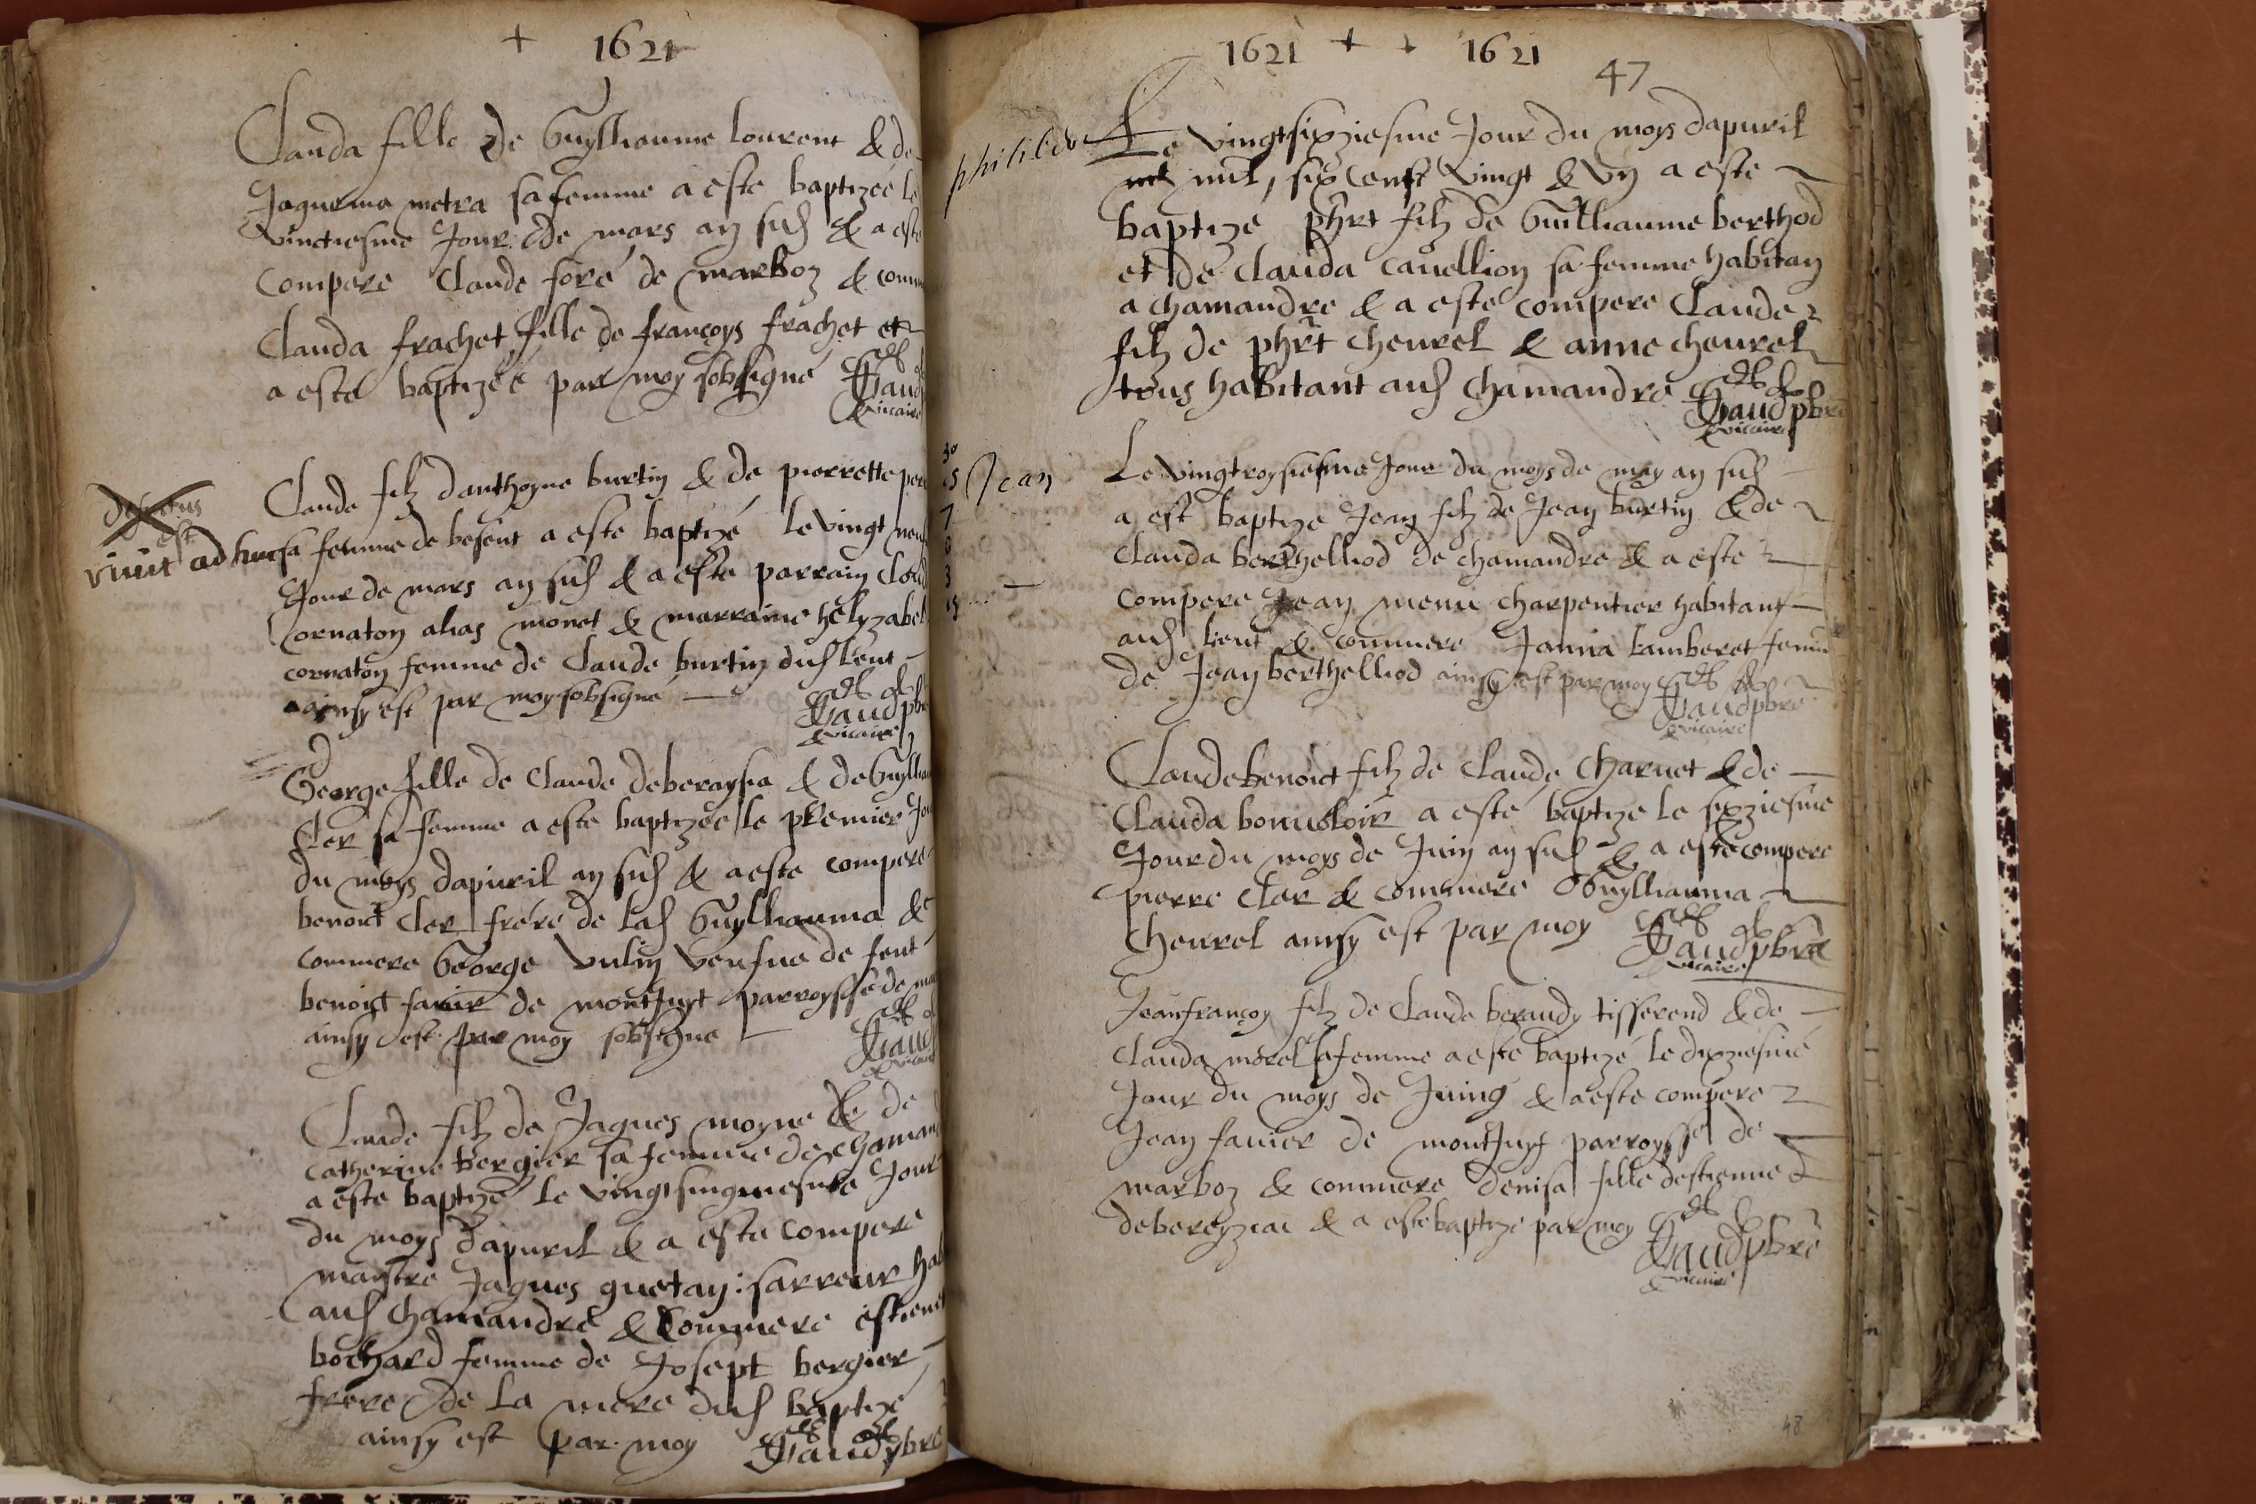 + 1621
Clauda fille de Guylliaume lourent & de
Jaquema metra sa femme a este baptizée le
vinctiesme Jour de mars an sus & a este
compere Claude foré de marboz & comm
Clauda frachet fille de françoys frachet et
a esté baptizéé par moy sobsigné
Gaud
vicaire
Claude filz danthoyne burtin & de pierrette per
defunctus
est
viuit ad huc
sa femme de besent a este baptizé le vingt neuf
Jour de mars an sus & a este parrain Claud
Cornaton alias monet & marraine helyzabet
cornaton femme de Claude burtin dus lieut
ainsy est par moy sobsigné
Gaud pbre
vicaire
George fille de Claude deberaysia & de Guyllia
Cler sa femme a este baptizéé le premier Jou
du moys dapuril an sus & a este compere
benoict Cler frere de las Guylliauma &
commere George vulin veufue de feut
benoict fauir de montJuyt parroysse de mar
ainsy est par moy sobsigne
Gaud
vicaire
Claude filz de Jaques moyne & de
Catherine bergier sa femme de chamand
a este baptizé le vingtsinquiesme Jour
du moys dapuril & a este compere
maistre Jaques guetan: sarreur hab
aus chamandré & commere estiene
bochard femme de Josept bergier
frere de la mere dus baptizé
ainsy est par moy Gaud pbre
1621 + + 1621
47
philibert
Le vingtsixziesme Jour du moys dapuril
mil, six Censt vingt & vn a este
baptizé phrt filz de Guilliaume berthod
et de clauda cauellion sa femme habitan
a chamandre & a esté compere Claude
filz de phrt cheurel & anne cheurel
tous habitant aus chamandré
Gaud pbre
vicaire
30
15
7
3
15
Jean
Le vingtroysiesme Jour du moys de may an sus
a est baptize Jean filz de Jean burtin & de
Clauda berthelliod de chamandre & a este
compere Jean menu charpentier habitant
aus lieut & commere Janna lamberet femme
de Jean berthelliod ainsy est par moy
Gaud pbre
vicaire
Claude benoict filz de Claude Charuet & de
Clauda bonuoloir a esté baptizé le sixziesme
Jour du moys de Juin an sus & a este compere
pierre cler & commere Guylliauma
Cheurel ainsy est par moy
Gaud pbre
vicaire
Jeanfrançoy filz de Claude beraudy tisserend & de
Clauda morel sa femme a este baptizé le dixziesme
Jour du moys de Juing & a este compere
Jean fauier de montJuyt parroysse de
marboz & commere denisa fille destienne
debereyziat & a este baptize par moy
Gaud pbre
vicaire
48